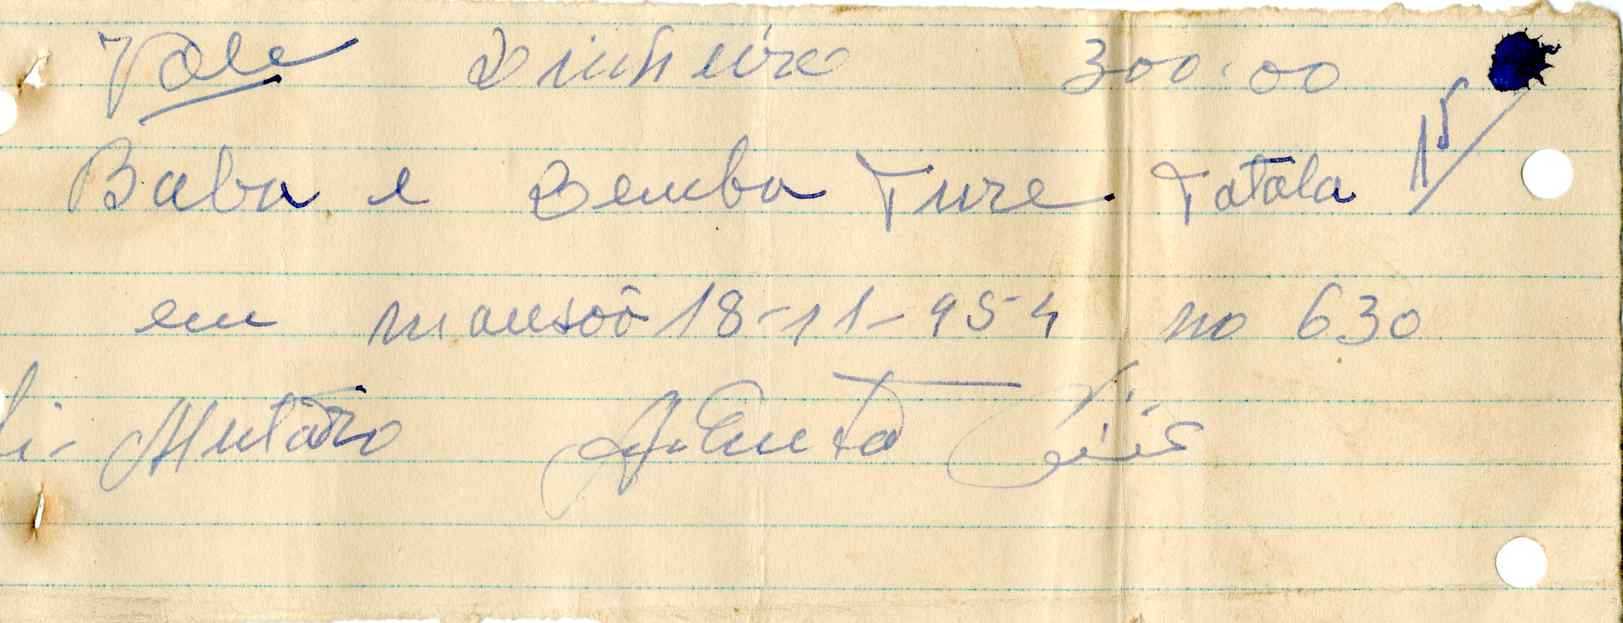 Vale Dinheiro 300.00
Baba e Demba Ture Tatala
em mansoô 18-11-954 no 630
li- Mutaro